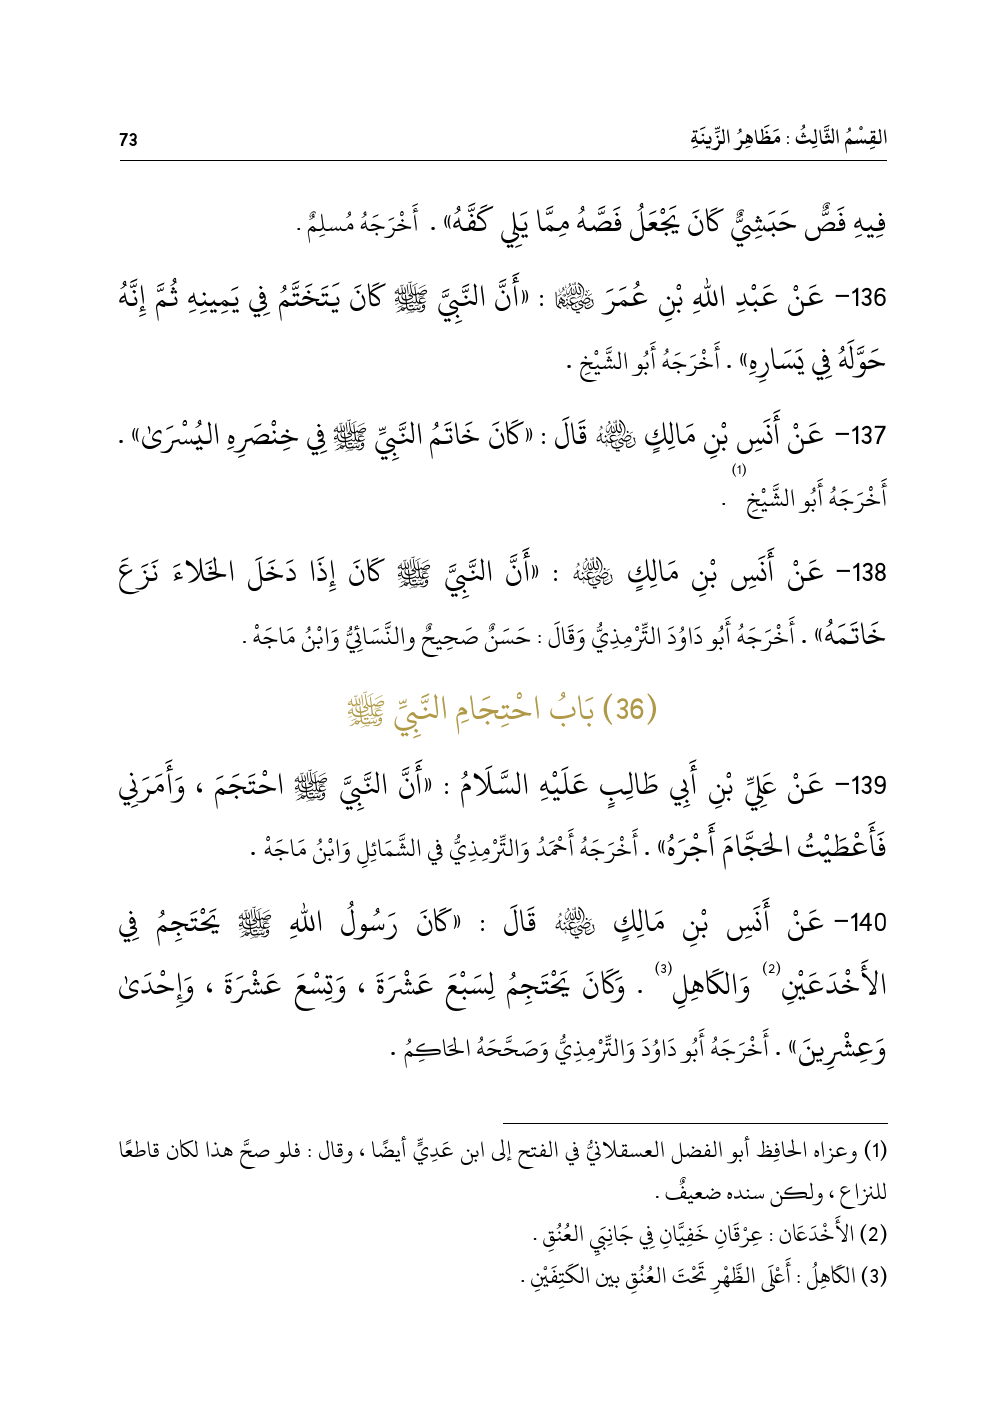 القِسْمُ الثَّالِثُ : مَظَاهِرُ الزِّينَةِ 73
فِيهِ فَصٌّ حَبَشِيٌّ كَانَ يَجْعَلُ فَصَّهُ مِمَّا يَلِي كَفَّهُ» . أَخْرَجَهُ مُسلِمٌ .
136– عَنْ عَبْدِ اللهِ بْنِ عُمَرَ رضي الله عنهما : «أَنَّ النَّبِيَّ ﷺ كَانَ يَتَخَتَّمُ فِي يَمِينِهِ ثُمَّ إِنَّهُ
حَوَّلَهُ فِي يَسَارِهِ» . أَخْرَجَهُ أَبُو الشَّيْخِ .
137– عَنْ أَنَسِ بْنِ مَالِكٍ رضي الله عنه قَالَ : «كَانَ خَاتَمُ النَّبِيِّ ﷺ فِي خِنْصَرِهِ اليُسْرَىٰ» .
أَخْرَجَهُ أَبُو الشَّيْخِ (1) .
138– عَنْ أَنَسِ بْنِ مَالِكٍ رضي الله عنه : «أَنَّ النَّبِيَّ ﷺ كَانَ إِذَا دَخَلَ الخَلاءَ نَزَعَ
خَاتَمَهُ» . أَخْرَجَهُ أَبُو دَاوُدَ التِّرْمِذِيُّ وَقَالَ : حَسَنٌ صَحِيحٌ والنَّسَائِيُّ وَابْنُ مَاجَهْ .
(36) بَابُ احْتِجَامِ النَّبِيِّ ﷺ
139– عَنْ عَلِيِّ بْنِ أَبِي طَالِبٍ عَلَيْهِ السَّلَامُ : «أَنَّ النَّبِيَّ ﷺ احْتَجَمَ ، وَأَمَرَنِي
فَأَعْطَيْتُ الحَجَّامَ أَجْرَهُ» . أَخْرَجَهُ أَحْمَدُ وَالتِّرْمِذِيُّ في الشَّمَائِلِ وَابْنُ مَاجَهْ .
140– عَنْ أَنَسِ بْنِ مَالِكٍ رضي الله عنه قَالَ : «كَانَ رَسُولُ اللهِ ﷺ يَحْتَجِمُ فِي
الأَخْدَعَيْنِ(2) وَالكَاهِلِ(3) . وَكَانَ يَحْتَجِمُ لِسَبْعَ عَشْرَةَ ، وَتِسْعَ عَشْرَةَ ، وَإِحْدَىٰ
وَعِشْرِينَ» . أَخْرَجَهُ أَبُو دَاوُدَ وَالتِّرْمِذِيُّ وَصَحَّحَهُ الحَاكِمُ .
(1) وعزاه الحافِظ أبو الفضل العسقلانيُّ في الفتح إلى ابن عَدِيٍّ أيضًا ، وقال : فلو صحَّ هذا لكان قاطعًا
للنزاع ، ولكن سنده ضعيفٌ .
(2) الأَخْدَعَان : عِرْقَانِ خَفِيَّانِ فِي جَانِبَيِ العُنُقِ .
(3) الكَاهِلُ : أَعْلَى الظَّهْرِ تَحْتَ العُنُقِ بين الكَتِفَيْنِ .